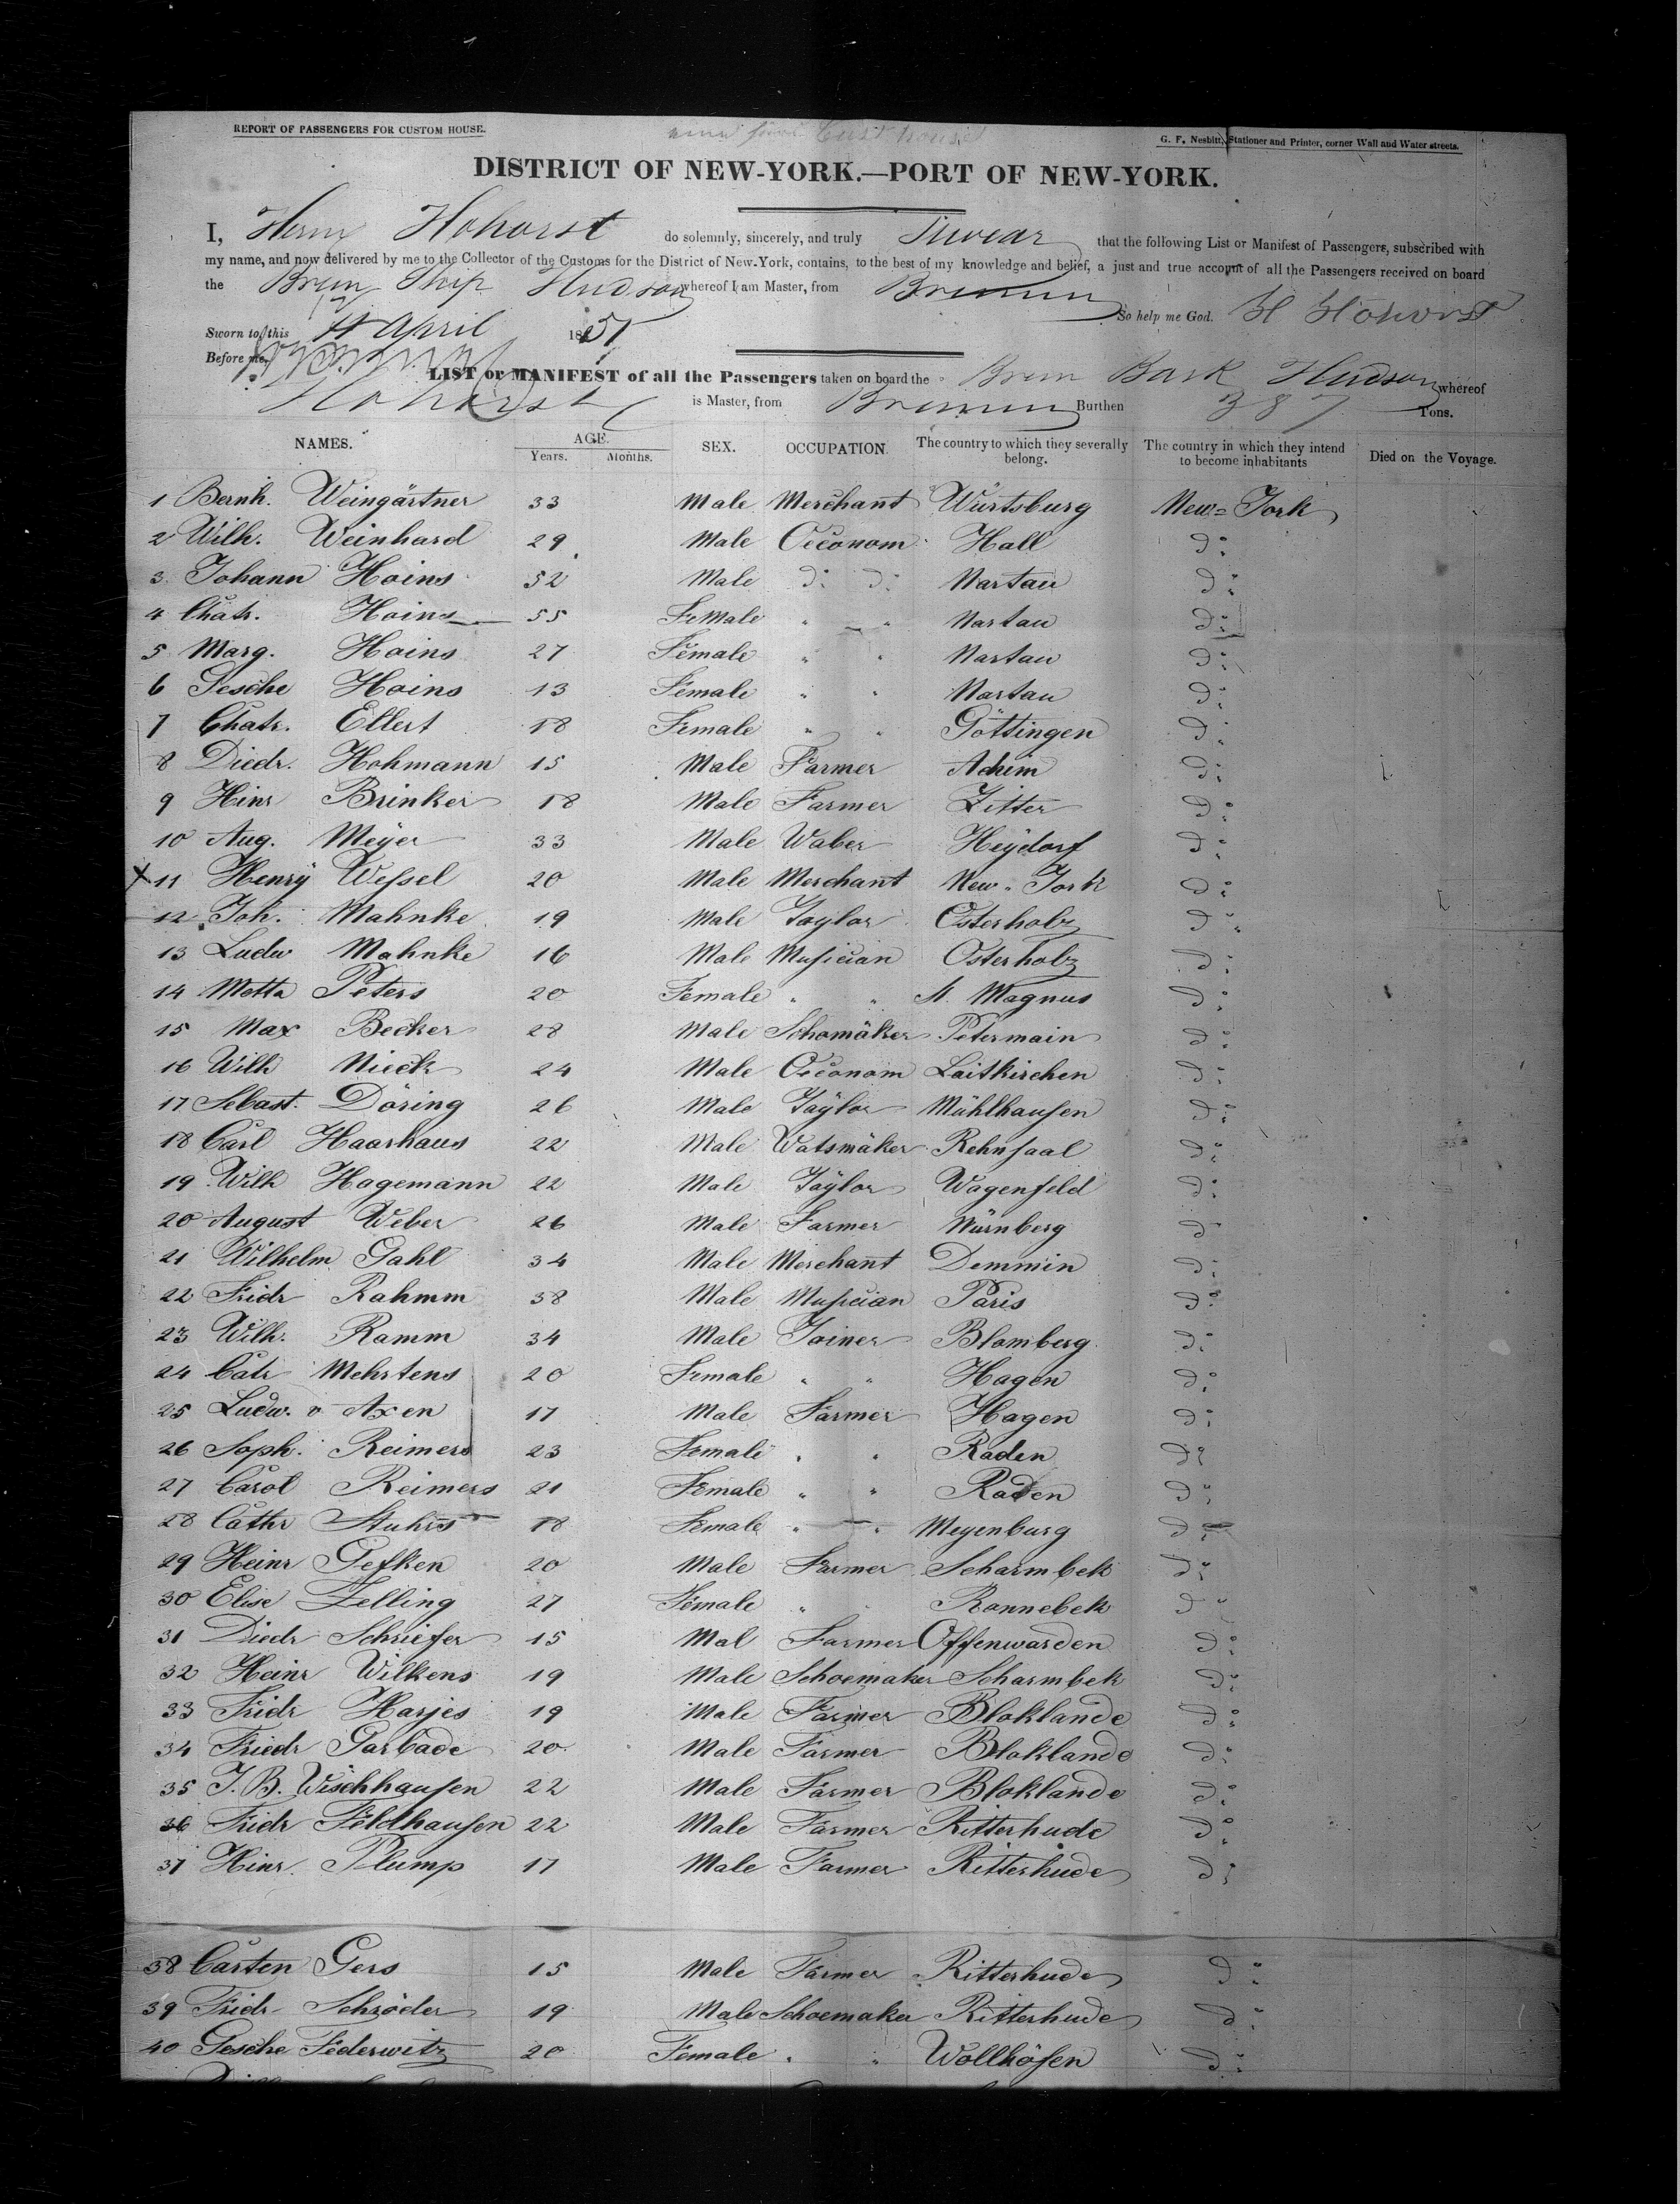 REPORT OF PASSENGERS FOR CUSTOM HOUSE.
G. F. Nesbitt, Stationer and Printer, corner Wall and Water streets.
DISTRICT OF NEW-YORK.—PORT OF NEW-YORK.
I, Herm Hohorst do solemnly, sincerely, and truly Swear that the following List or Manifest of Passengers, subscribed with
my name, and now delivered by me to the Collector of the Customs for the District of New-York, contains, to the best of my knowledge and belief, a just and true account of all the Passengers received on board
the Brem Ship Hudson whereof I am Master, from Bremen
So help me God. H Hohorst
Sworn to, this April 1851
Before me,
LIST or MANIFEST of all the Passengers taken on board the Brem Bark Hudson whereof
Hohorst is Master, from Bremen Burthen 387 Tons.
NAMES. AGE. Years. Months. SEX. OCCUPATION. The country to which they severally belong. The country in which they intend to become inhabitants Died on the Voyage.
1 Bernh. Weingärtner 33 Male Merchant Würtsburg New=York
2 Wilh. Weinhard 29 Male Oeconom Hall do
3 Johann Hoins 52 Male do do Nartau do
4 Chatr. Hoins 55 FeMale " " Nartau do
5 Marg. Hoins 27 Female " " Nartau do
6 Gesche Hoins 13 Female " " Nartau do
7 Chatr. Ellert 18 Female " " Göttingen do
8 Diedr. Hohmann 15 Male Farmer Achim do
9 Hinr Brinker 18 Male Farmer Zitter do
10 Aug. Meÿer 33 Male Waber Heÿdorf do
x 11 Henrÿ Weſsel 20 Male Merchant New-York do
12 Joh. Mahnke 19 Male Taylor Osterholz do
13 Ludw Mahnke 16 Male Muſician Osterholz do
14 Metta Peters 20 Female " " St. Magnus do
15 Max Becker 28 Male Schomäker Petermain do
16 Wilh Nieck 24 Male Oeconom Laitkirchen do
17 Sebast. Döring 26 Male Taÿlor Mühlhauſen do
18 Carl Haarhaus 22 Male Watsmäker Rehnſaal do
19 Wilh Hagemann 22 Male Taÿlor Wagenfeld do
20 August Weber 26 Male Farmer Nürnberg do
21 Wilhelm Gahl 34 Male Merchant Demmin do
22 Fridr Rahmm 38 Male Muſician Paris do
23 Wilh. Ramm 34 Male Joiner Blomberg do
24 Catr Mehrtens 20 Female " " Hagen do
25 Ludw. v Axen 17 Male Farmer Hagen do
26 Soph. Reimers 23 Female " " Raden do
27 Carol Reimers 21 Female " " Raden do
28 Cathr Stuhrs 18 Female " " Meyenburg do
29 Heinr Gefken 20 Male Farmer Scharmbek do
30 Elise Zelling 27 Female " " Rannebek do
31 Diedr Schriefer 15 Mal Farmer Offenwarden do
32 Heinr Wilkens 19 Male Schoemaker Scharmbek do
33 Fridr Harjes 19 Male Farmer Bloklande do
34 Friedr Garbade 20 Male Farmer Bloklande do
35 J. B. Wischhauſen 22 Male Farmer Bloklande do
36 Fridr Feldhauſen 22 Male Farmer Ritterhude do
37 Hinr. Plump 17 Male Farmer Ritterhude do
38 Carsten Gers 15 Male Farmer Ritterhude do
39 Fridr Schröder 19 Male Schoemaker Ritterhude do
40 Gesche Federwitz 20 Female " " Wollhöfen do